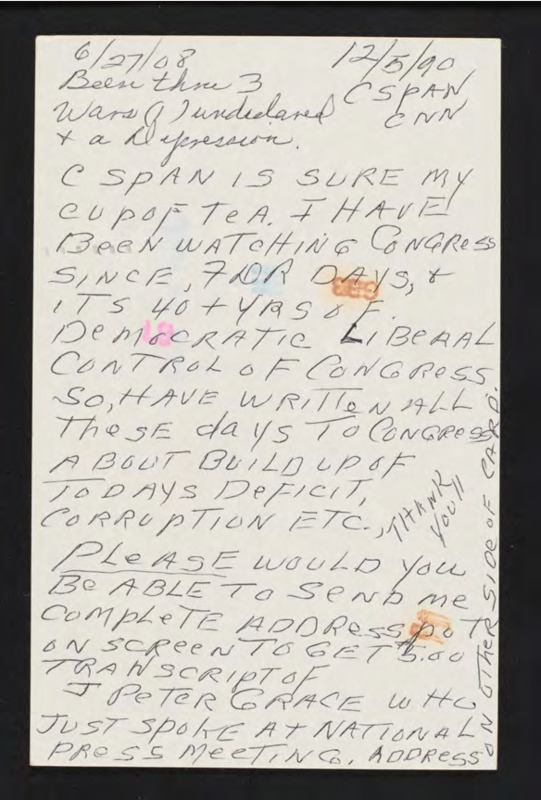 6/27/08 12/5/90
Been thru 3 CSPAN
Wars (1) undeclared CNN
+ a Depression.
C SPAN IS SURE MY
CUP OF TEA. I HAVE
BEEN WATCHING CONGRESS
SINCE, FDR DAYS, +
ITS 40 + YRS OF.
DEMOCRATIC LIBERAL
CONTROL OF CONGRESS.
SO, HAVE WRITTEN ALL
THESE DAYS TO CONGRESS
ABOUT BUILD UP OF
TODAYS DEFICIT,
CORRUPTION ETC.,
THANK YOU!!
PLEASE WOULD YOU
BE ABLE TO SEND ME
COMPLETE ADDRESS POT
ON SCREEN TO GET $5.00
TRANSCRIPT OF
J PETER GRACE WHO
JUST SPOKE AT NATIONAL
PRESS MEETING. ADDRESS
ON OTHER SIDE OF CARD.